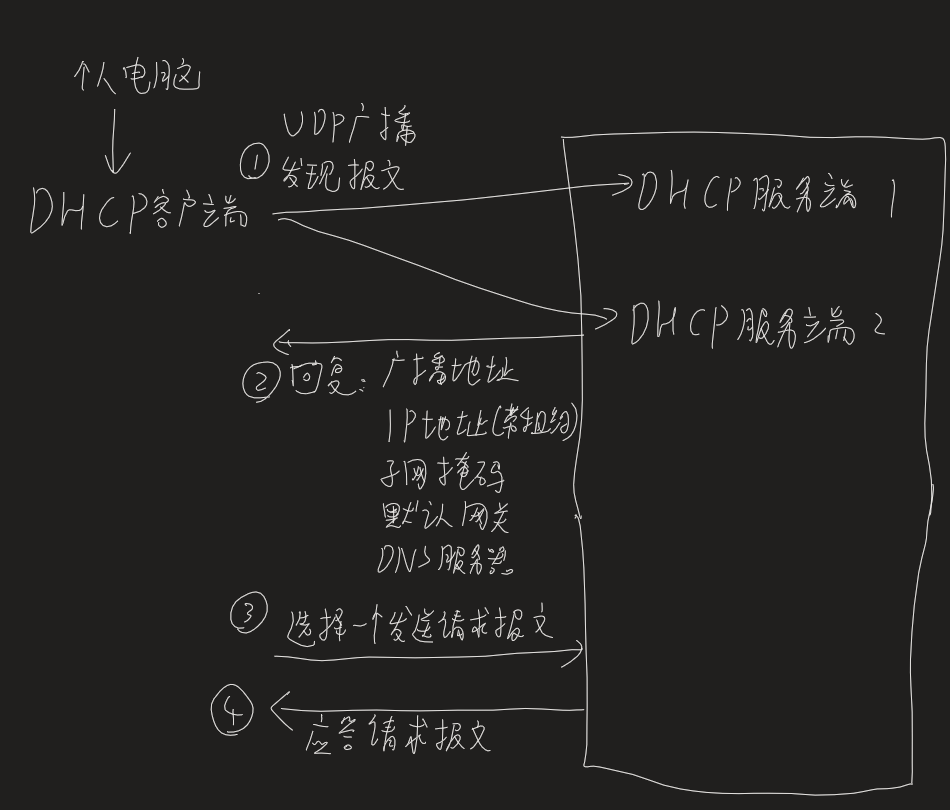 个人电脑
UDP广播
① 发现报文
DHCP客户端
DHCP服务端 1
DHCP服务端 2
② 回复: 广播地址
IP地址(带租约)
子网掩码
默认网关
DNS服务器
③ 选择一个发送请求报文
④ 应答请求报文